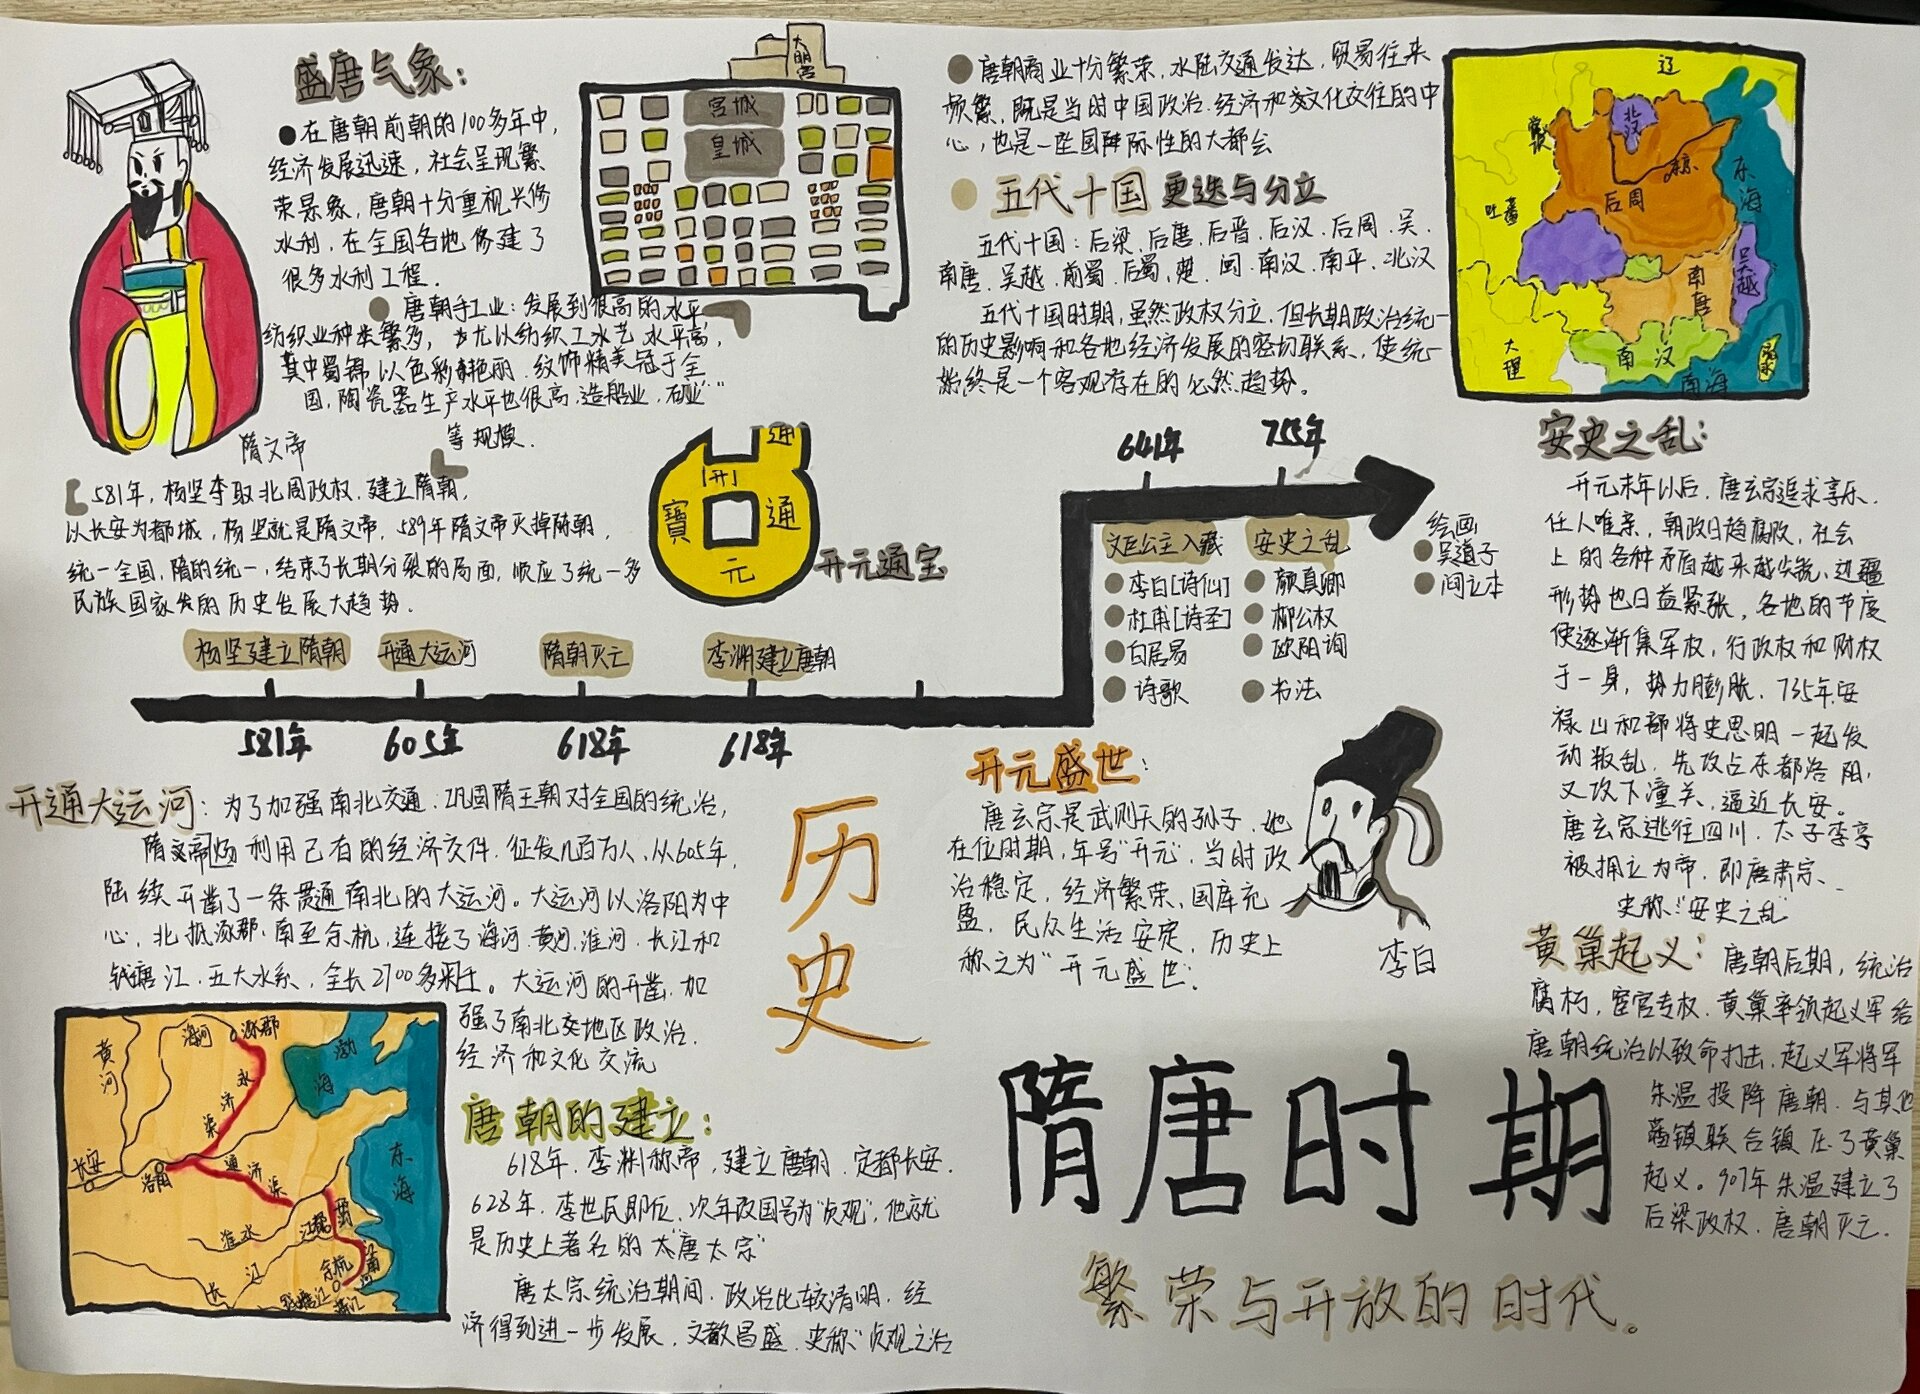 盛唐气象：
在唐朝前朝的100多年中，
经济发展迅速，社会呈现繁
荣景象，唐朝十分重视兴修
水利，在全国各地修建了
很多水利工程．
唐朝手工业：发展到很高的水平
纺织业种类繁多，尤以纺织工水艺水平高，
其中蜀锦以色彩艳丽．纹饰精美冠于全
国，陶瓷器生产水平也很高，造船业，矿业
等规模．
隋文帝
大明宫
宫城
皇城
581年，杨坚夺取北周政权．建立隋朝．
以长安为都城，杨坚就是隋文帝．589年隋文帝灭掉陈朝．
统一全国，隋的统一，结束了长期分裂的局面，顺应了统一多
民族国家发的历史发展大趋势．
通
开
寳
通
元
开元通宝
唐朝商业十分繁荣，水陆交通发达，贸易往来
频繁，既是当时中国政治．经济和文化交往的中
心，也是一座国际性的大都会
五代十国更迭与分立
五代十国：后梁、后唐、后晋、后汉、后周、吴、
南唐、吴越、前蜀、后蜀、楚、闽、南汉、南平、北汉
五代十国时期，虽然政权分立，但长期政治统一
的历史影响和各地经济发展的密切联系，使统一
始终是一个客观存在的必然趋势。
辽
北汉
党项
东京
后周
东海
吐蕃
吴越
南唐
南汉
大理
南海
流求
杨坚建立隋朝
开通大运河
隋朝灭亡
李渊建立唐朝
581年
605年
618年
618年
641年
755年
文臣公主入藏
李白[诗仙]
杜甫[诗圣]
白居易
诗歌
安史之乱
颜真卿
柳公权
欧阳询
书法
绘画
吴道子
阎立本
安史之乱：
开元末年以后，唐玄宗追求享乐．
任人唯亲，朝政日趋腐败，社会
上的各种矛盾越来越尖锐，边疆
形势也日益紧张，各地的节度
使逐渐集军权，行政权和财权
于一身，势力膨胀．735年安
禄山和部将史思明一起发
动叛乱．先攻占东都洛阳．
又攻下潼关，逼近长安。
唐玄宗逃往四川．太子李亨
被拥立为帝．即唐肃宗．
史称："安史之乱"
开通大运河：为了加强南北交通；巩固隋王朝对全国的统治，
隋炀利用已有的经济文件．征发几百万人，从605年．
陆续开凿了一条贯通南北的大运河。大运河以洛阳为中
心，北抵涿郡、南至余杭，连接了海河．黄河．淮河．长江和
钱塘江．五大水系，全长2700多米。大运河的开凿．加
强了南北交地区政治．
经济和文化交流
黄河
海河
涿郡
渤海
永济渠
长安
洛阳
通济渠
东海
淮水
江都
长江
余杭
江南河
钱塘江
历史
唐朝的建立：
618年．李渊称帝，建立唐朝．定都长安．
628年．李世民即位．次年改国号为"贞观"．他就
是历史上著名的太"唐太宗"
唐太宗统治期间．政治比较清明．经
济得到进一步发展，文教昌盛．史称"贞观之治
开元盛世：
唐玄宗是武则天的孙子．他
在位时期，年号"开元"．当时政
治稳定．经济繁荣，国库充
盈．民众生活安定．历史上
称之为"开元盛世"．
李白
黄巢起义：唐朝后期，统治
腐朽，宦官专权．黄巢率领起义军给
唐朝统治以致命打击．起义军将军
朱温投降唐朝．与其他
藩镇联合镇压了黄巢
起义。907年朱温建立了
后梁政权．唐朝灭亡．
隋唐时期
繁荣与开放的时代。